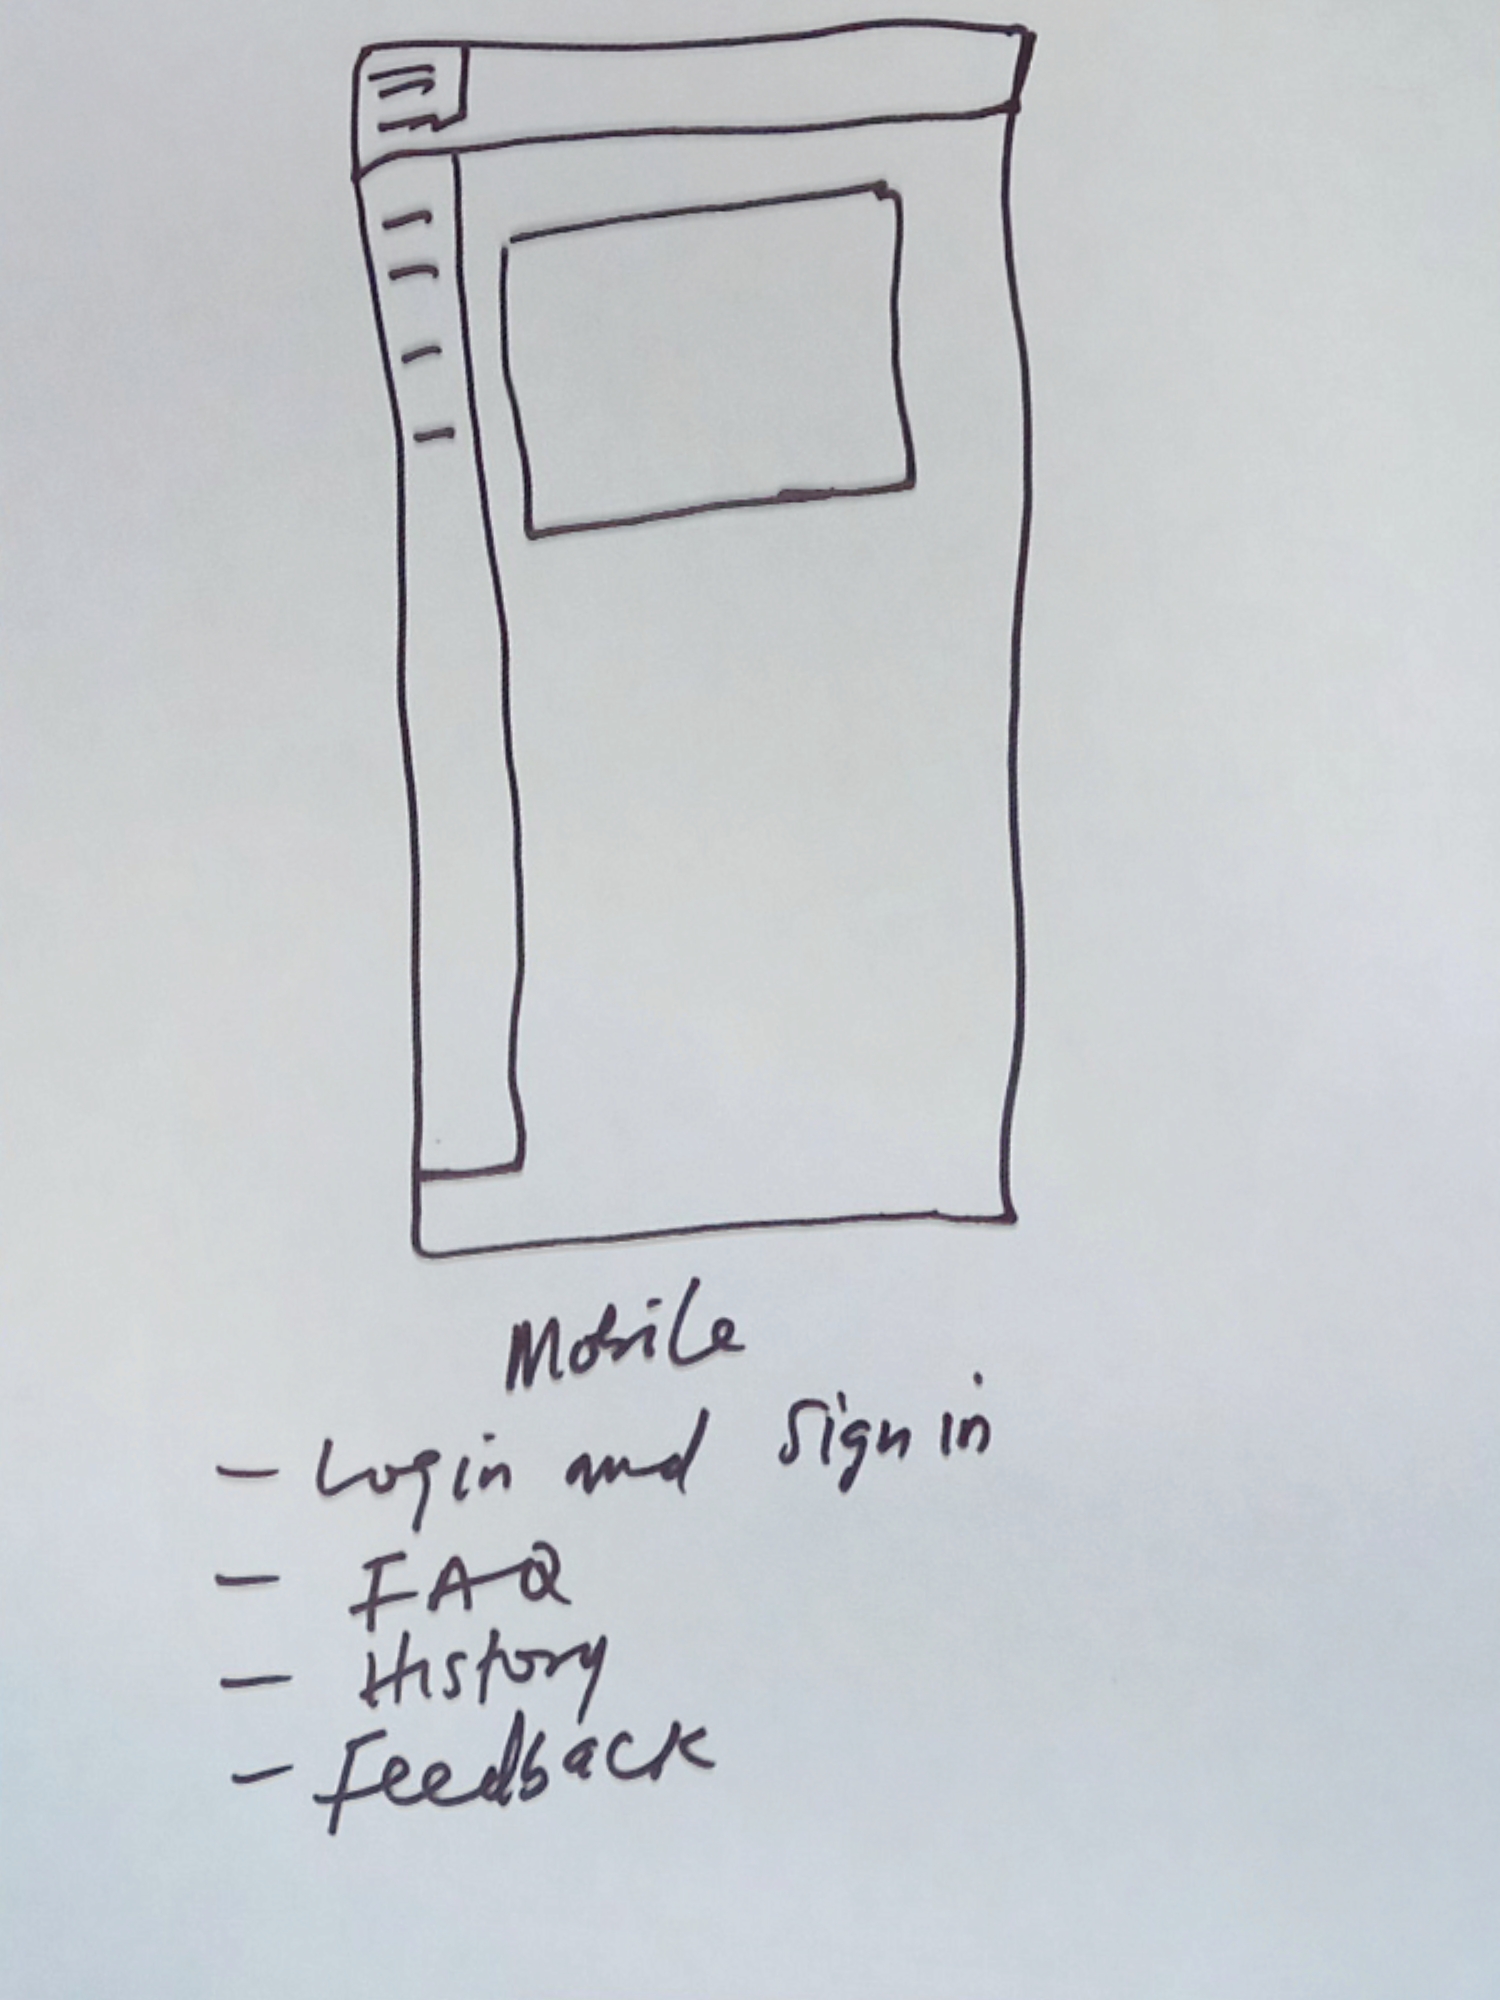 Mobile
- Login and Sign in
- FAQ
- History
- Feedback